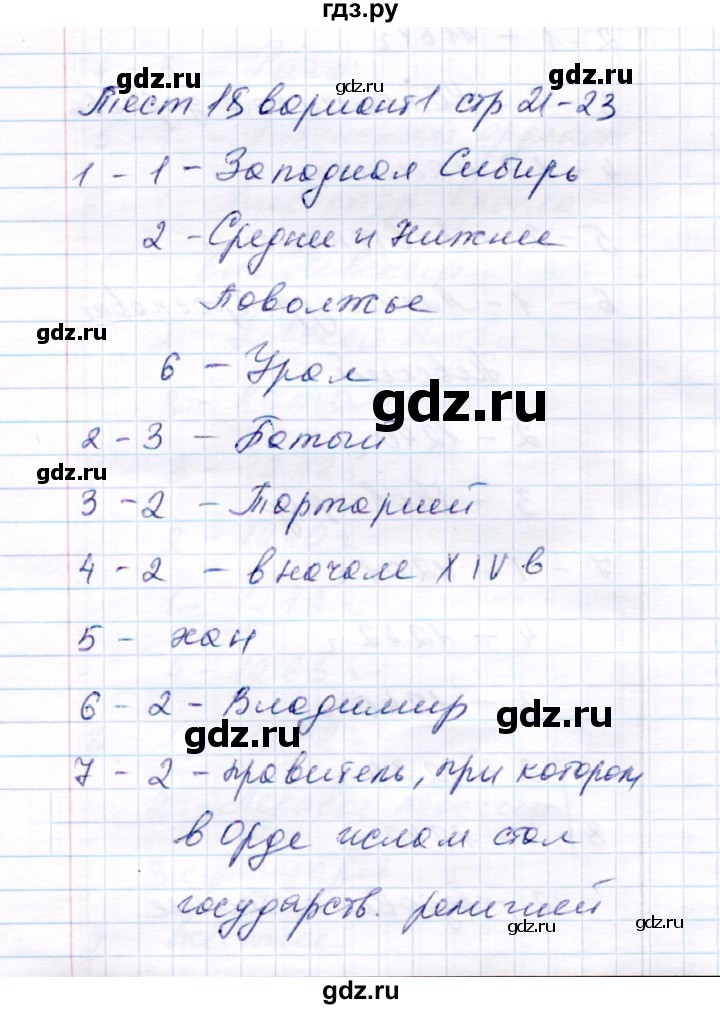 гдз.ру
Тест 18 вариант 1 стр 21-23
1 - 1 - Западная Сибирь
2 - Средне и Нижнее
Поволжье
6 - Урал
2 - 3 - Батый
3 - 2 - Тартарией
4 - 2 - в начале XIV в
5 - хан
6 - 2 - Владимир
7 - 2 - правитель, при котором
в Орде ислам стал
государств. религией
gdz.ru
gdz.ru
gdz.ru
gdz.ru
gdz.ru
gdz.ru
gdz.ru
gdz.ru
gdz.ru
gdz.ru
gdz.ru
gdz.ru